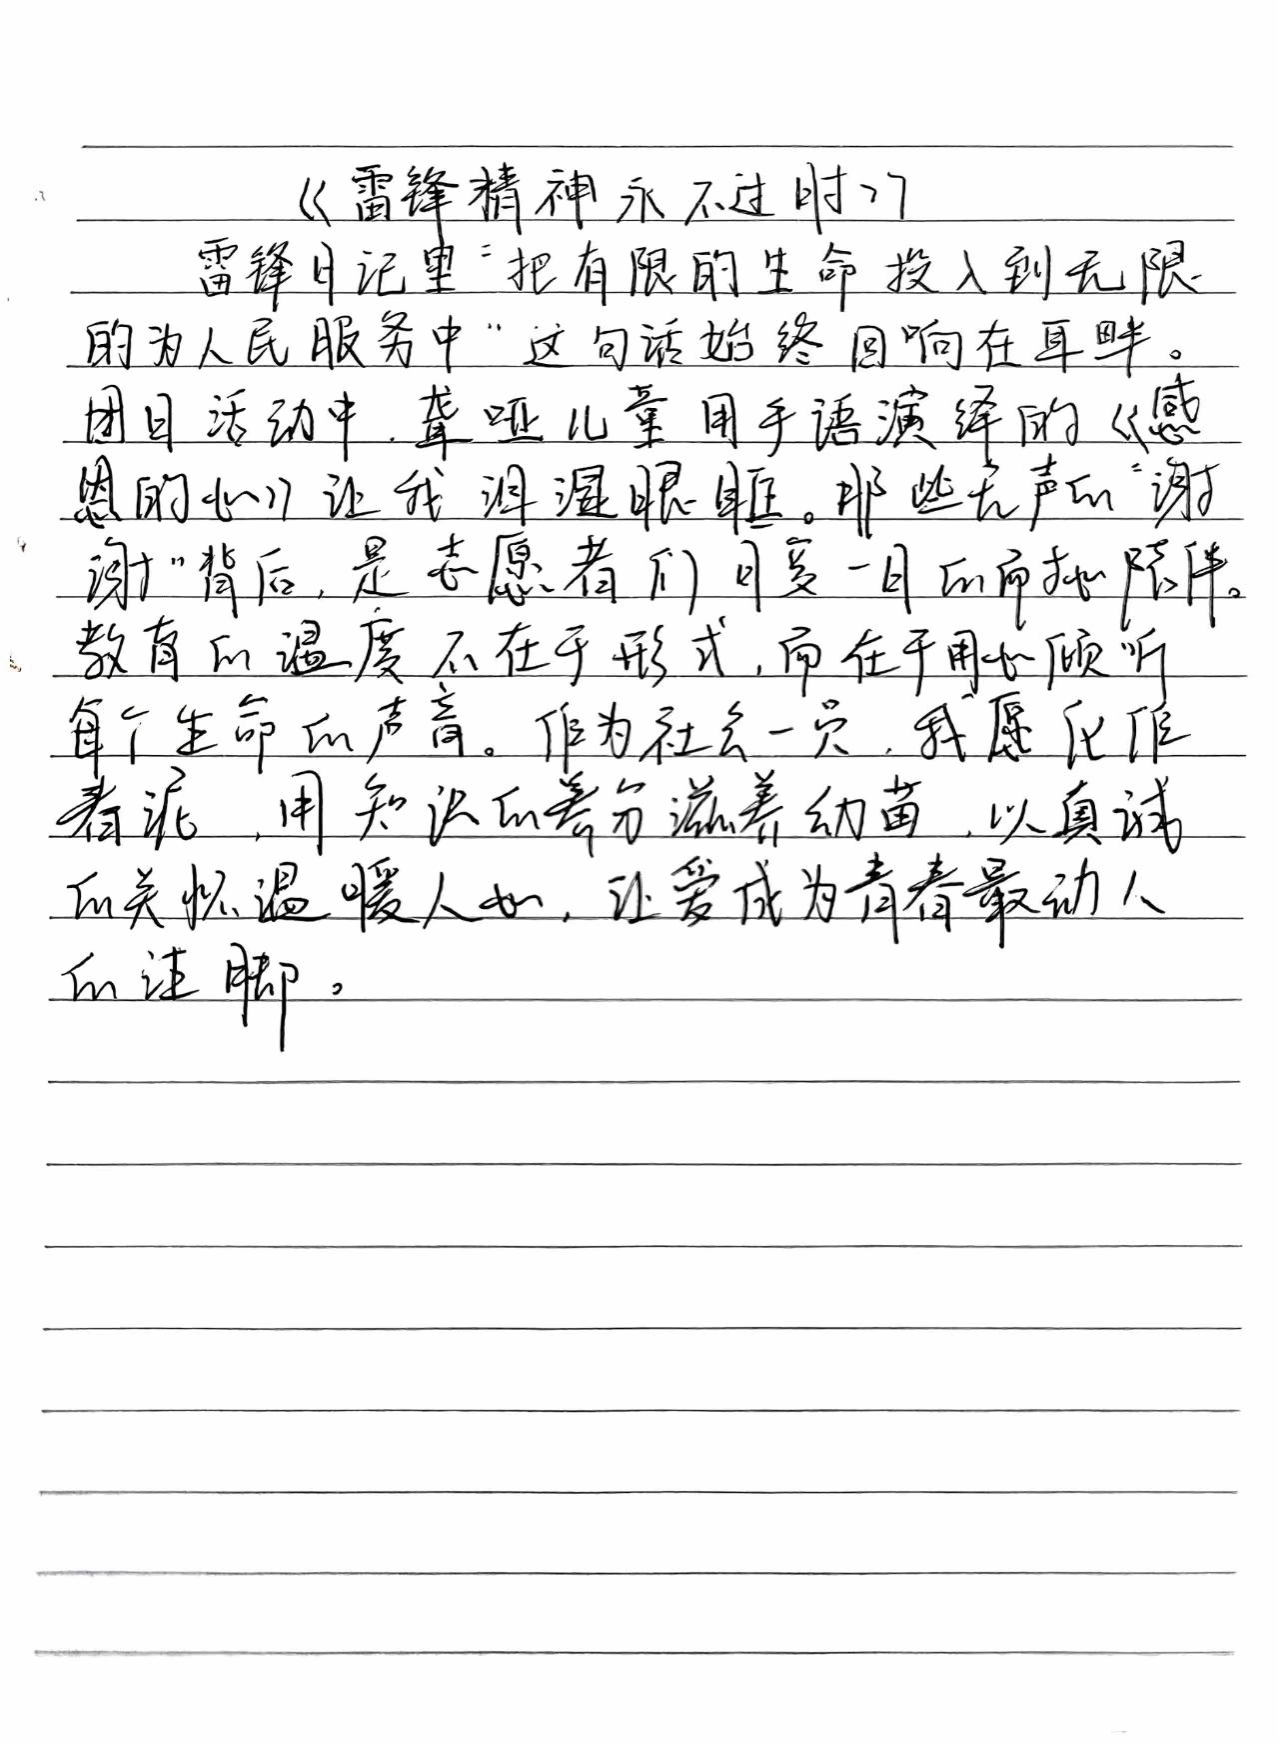 《雷锋精神永不过时》
雷锋日记里“把有限的生命投入到无限
的为人民服务中”这句话始终回响在耳畔。
团日活动中，聋哑儿童用手语演绎的《感
恩的心》让我泪湿眼眶。那些无声的“谢
谢”背后，是志愿者们日复一日的耐心陪伴。
教育的温度不在于形式，而在于用心倾听
每个生命的声音。作为社会一员，我愿化作
春泥，用知识的养分滋养幼苗，以真诚
的关怀温暖人心，让爱成为青春最动人
的注脚。